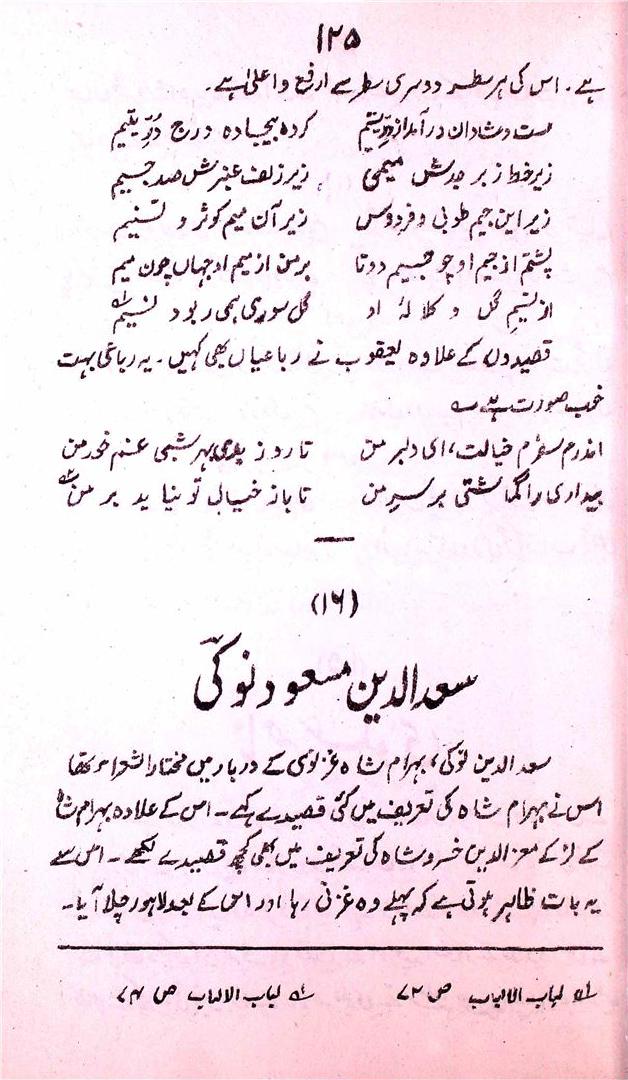 ۱۲۵
ہے۔ اس کی ہر سطر دوسری سطر سے ارفع و اعلیٰ ہے۔
مست و شادان در آمد از در تیم کرده بیجاده درج درّ یتیم
زیر خط زبر میمی زیر زلف عنبرش صد جیم
زیر این جیم طوبیٰ و فردوس زیر آن میم کوثر و تسنیم
پشتم از جیم او چو جیم دو تا بر من از میم او جہاں چون میم
از گل و کلالۂ او گل سوری ہمی ربود نسیم
قصیدوں کے علاوہ یعقوب نے رباعیاں بھی کہیں۔ یہ رباعی بہت
خوب صورت ہے
خیالت، ای دلبر من تا روز بدی بہر شبی غم خور من
بیداری را گماشتی بر سر من تا باز خیال تو نیاید بر من
(۱۶)
سعد الدین مسعود نوکی
سعد الدین نوکی، بہرام شاہ غزنوی کے دربار میں مختار الشعرا تھا
اس نے بہرام شاہ کی تعریف میں کئی قصیدے کہے۔ اس کے علاوہ بہرام شاہ
کے لڑکے معز الدین خسرو شاہ کی تعریف میں بھی کچھ قصیدے لکھے۔ اس سے
یہ بات ظاہر ہوتی ہے کہ پہلے وہ غزنی رہا اور اس کے بعد لاہور چلا آیا۔
لباب الالباب ص ۷۲ لباب الالباب ص ۷۴